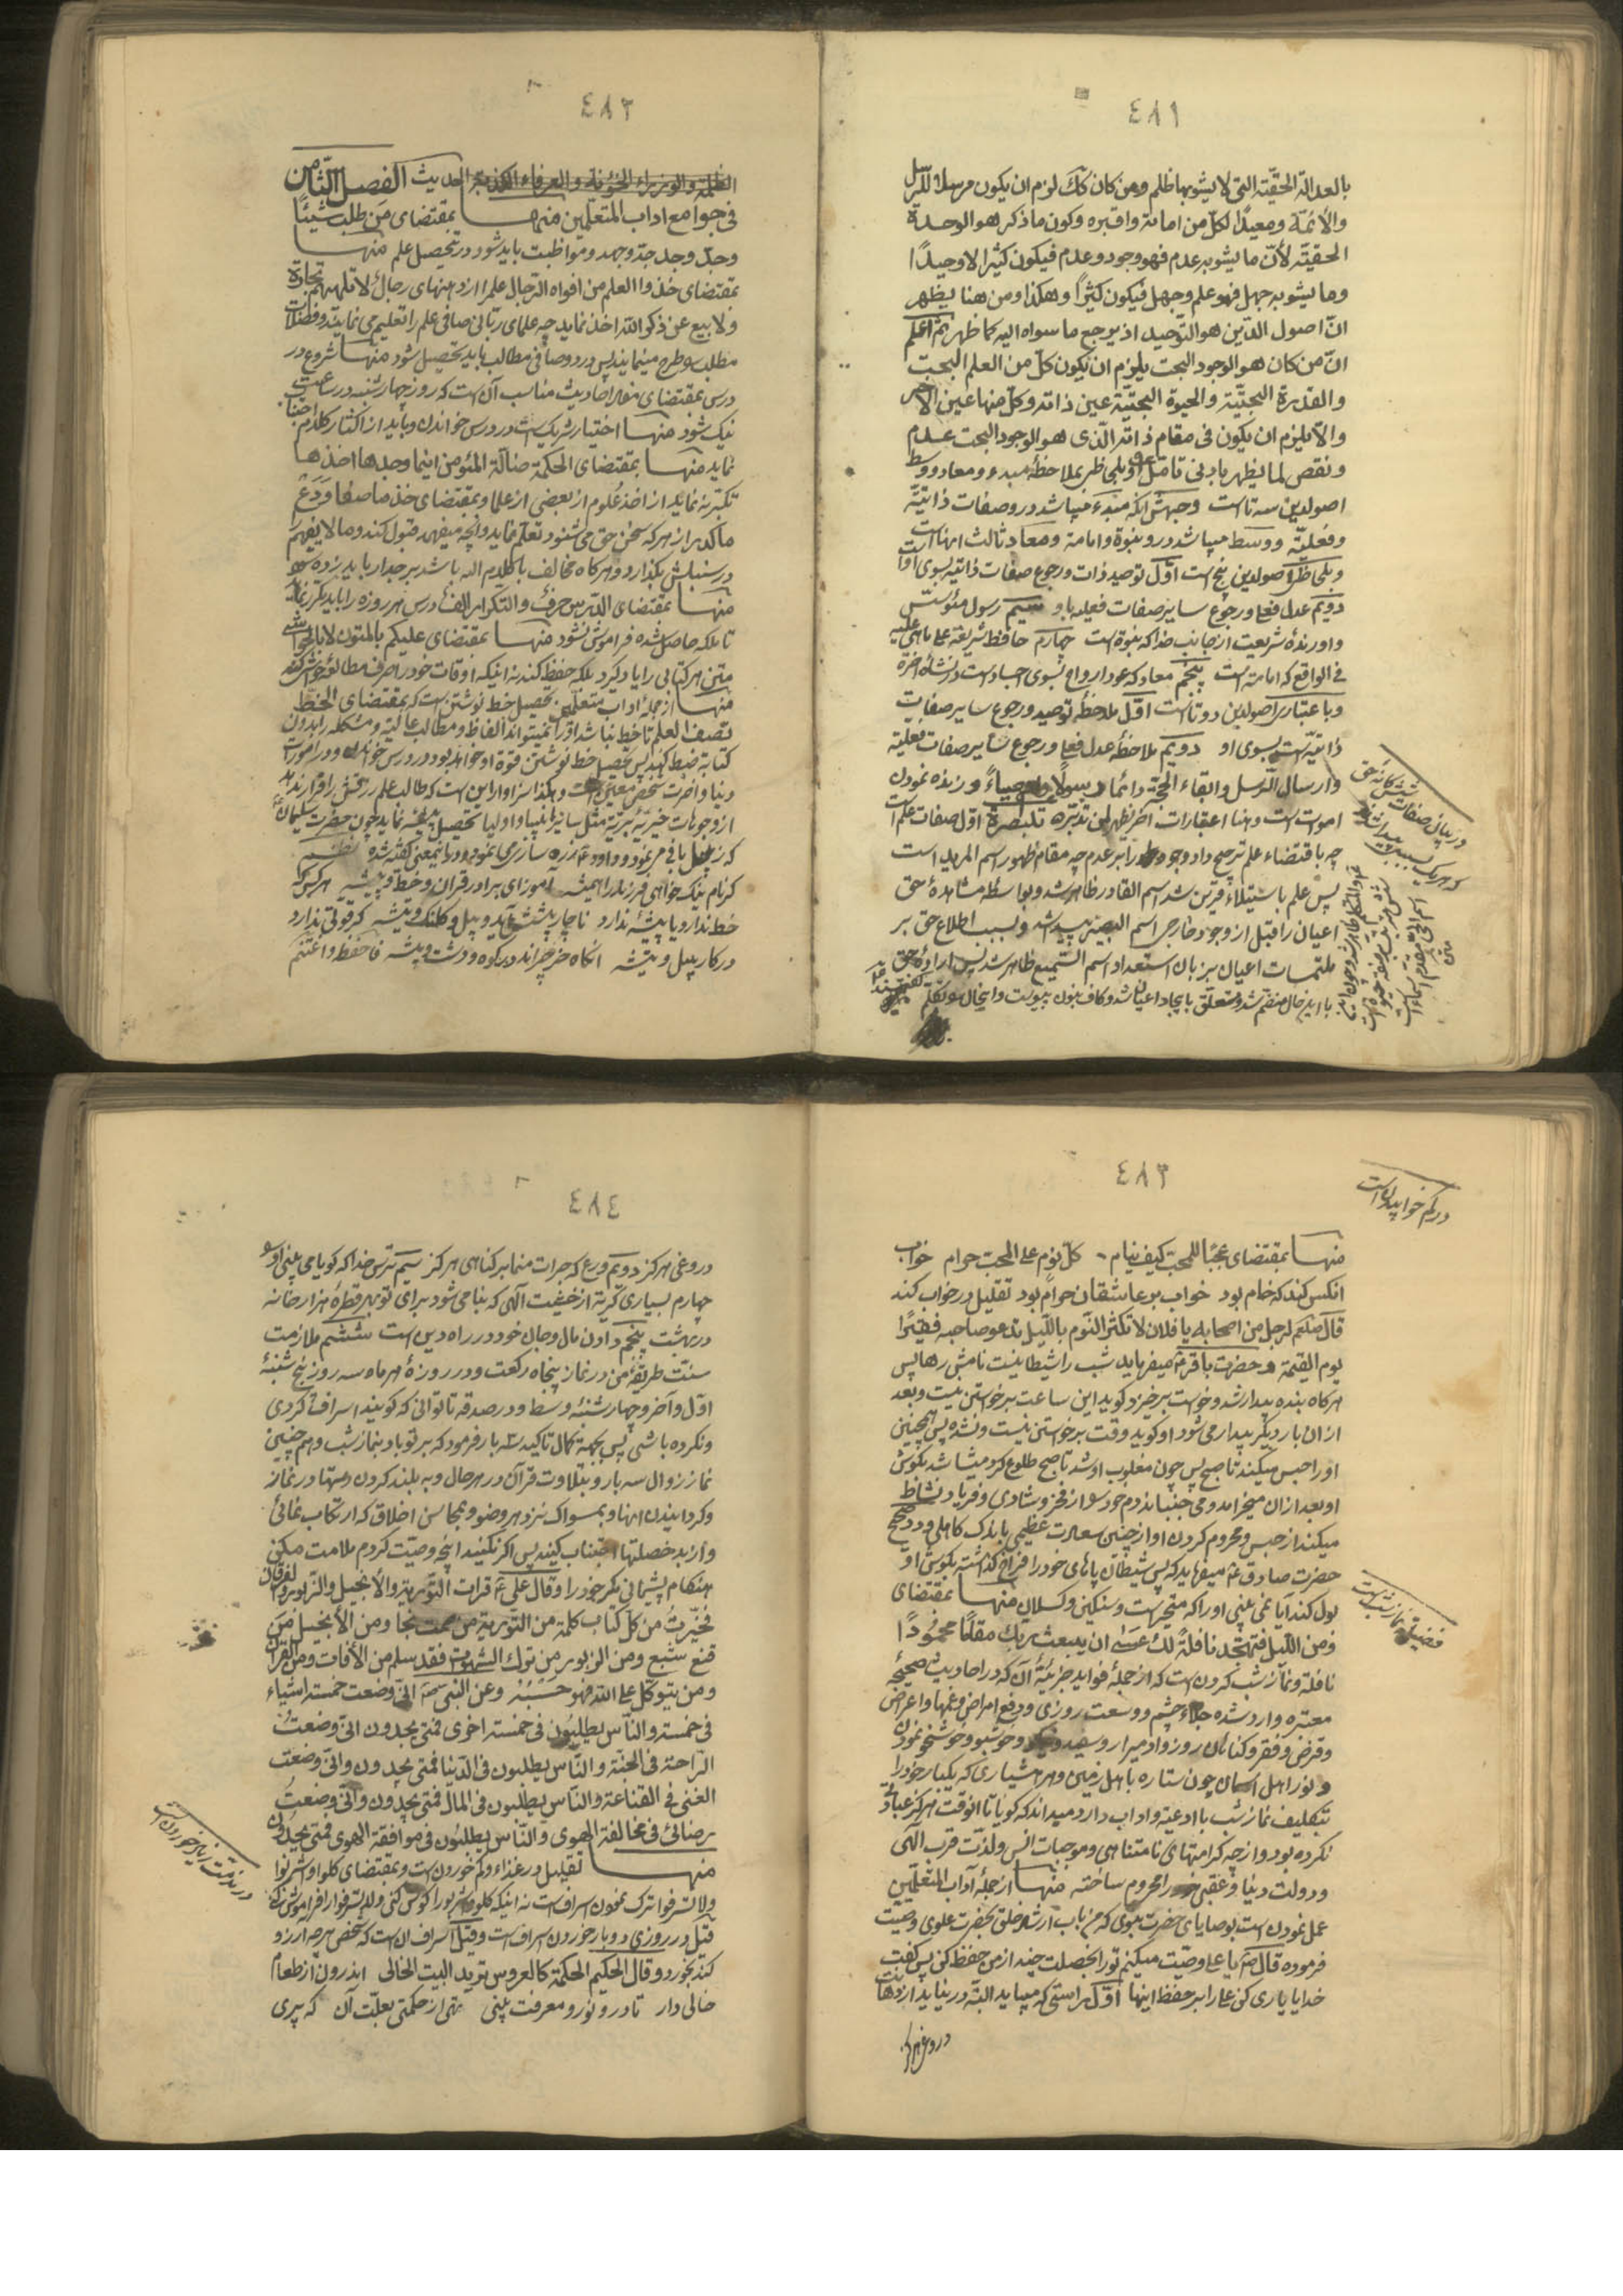 ٤٨١
بالعدالة الحقّيّة التى لا يشوبها ظلم ومن كان كك لزم ان يكون مرسلا للرسل
والأئمّة ومعيدًا لكلّ من اماته واقبره وكون ما ذكر هو الوحدة
الحقيّة لأنّ ما يشوبه عدم فهو وجود وعدم فيكون كثيرا لا وحيدًا
وما يشوبه جهل فهو علم وجهل فيكون كثيرًا وهكذا ومن هنا يظهر
انّ اصول الدّين هو التّوحيد اذ يرجع ما سواه اليه كما ظهر ثمّ اعلم
انّ من كان هو الوجود البحت يلزم ان يكون كلّ من العلم البحت
والقدرة البحتيّة والحيوة البحتيّة عين ذاته وكلّ منها عين الآخر
والّا يلزم ان يكون فى مقام ذاته الّذى هو الوجود البحت عدم
ونقص لما يظهر بادنى تامّل و بلحاظ بملاحظهٔ مبدء ومعاد ووسط
اصولدين سه تا است وجهش انكه مبدء ميباشد در و صفات ذاتيّة
وفعليّه ووسط ميباشد در و نبوة وامامة ومعاد ثالث انها است
وبلحاظ اصولدين پنج است اوّل توحيد ذات ورجوع صفات ذاتيه بسوى او
دويّم عدل فعل ورجوع ساير صفات فعليه باو سيم رسول مؤسّس
واورندهٔ شريعت از جانب خدا كه نبوة است چهارم حافظ شريعة على ما هى عليه
فى الواقع كه امامة است پنجم معاد كه عود ارواح بسوى اجساد است در نشأة اخرة
وباعتبار اصولدين دوتا است اوّل ملاحظهٔ توحيد ورجوع ساير صفات
ذاتيّه بسوى او دويّم ملاحظهٔ عدل فعل ورجوع ساير صفات فعليّه
وارسال الرّسل وابقاء الحجّة دائما رسولًا ووصياءً وزنده نمودن
اموات است وهنا اعتبارات اخر يظهر لمن تدبّره تبصرة اوّل صفات علم است
چه باقتضاء علم ترجيح داد وجود را بر عدم چه مقام ظهور اسم المريد است
پس علم باستيلاء قرين شد اسم القادر ظاهر شد وبواسطه مشاهدهٔ حق
اعيان را قبل از وجود خارجى اسم البصير پيدا شد وبسبب اطلاع حق بر
ملتمسات اعيان بزبان استعداد اسم السّميع ظاهر شد پس ارادهٔ حق
با اين حال منضم شد ومتعلق بايجاد اعيان شد وكاف بنون پيوست واين حال موتكلّم
در بيان صفات ششكانه حق
كه هر يك بسبب پيدا شد
٤٨٢
الظلمة والوزراء الخونة والعرفاء الكذبة الحديث الفصل الثّامن
فى جوامع اداب المتعلّمين منها بمقتضاى مَن طلب شيئًا
وجدّ وجد جدّ وجهد ومواظبت بايد شود در تحصيل علم منها
بمقتضاى خذوا العلم من افواه الرّجال علم را از دهنهاى رجال لا تلهيهم تجارة
ولا بيع عن ذكر الله اخذ نمايد چه علماى ربّانى صافى علم را تعليم مى نمايند وفضلات
مطلب را طرح مينمايند پس درد وصافى مطالب بايد تحصيل شود منها شروع در
درس بمقتضاى مفاد احاديث مناسب آن است كه روز چهارشنبه در ساعت
نيك شود منها اختيار شريك است در درس خواندن وبايد از اكثار كلام اجتناب
نمايد منها بمقتضاى الحكمة ضالّة المؤمن اينما وجدها اخذها
تكبّر نه نمايد از اخذ علوم از بعضى از علما وبمقتضاى خذ ما صفا وَدَعْ
ما كدر از هر كه سخن حق مى شنود تعلّم نمايد وآنچه ميفهمد قبول كند وما لا يفهم را
در سنبلش بگذارد وهر كاه مخالف با كلام اله باشد بر جدار بايد زده شود
منها بمقتضاى الدّرس حرف والتّكرار الف درس هر روزه را بايد تكرار نمايد
تا ملكه حاصل شده فراموش نشود منها بمقتضاى عليكم بالمتون لا بالحواشى
متن هر كتابى را ياد گيرد بلكه حفظ كند نه اينكه اوقات خود را صرف مطالعهٔ حواشى كند
منها از جملهٔ اداب متعلّمين تحصيل خط نوشتن است كه بمقتضاى الخطّ
نصف العلم تا خط نباشد او را نميتواند الفاظ ومطالب عاليه ومشكله را بدون
كتابة ضبط كند پس تحصيل خط نوشتن قوّة او خواهد بود در درس خواندن ودر امورات
دنيا واخرت شخص معين است وهكذا سزاوار اين است كه طالب علم رزقش را قرار ندهد
از وجوهات خيريّه بريّه مثل ساير انبيا واوليا تحصيل پيشه نمايد چون حضرت سليمان
كه زنبيل بافى مى نمود وداود ع زره سازى مى نمود ودر اينمعنى گفته شده نظم
گر نام نيك خواهى فرزند را هميشه آموز اى برادر قران وخط وپيشه هر كس كه
خط ندارد يا پيشهٔ ندارد ناچار پيشش آيد وبيل وكلنگ وتيشه گر قوتى ندارد
در كار بيل وتيشه آنگاه خر چراند در كوه ودشت وبيشه فاحفظ واغتنم
٤٨٣
در كم خوابيدن است
منها بمقتضاى عجبًا للمحب كيف ينام - كلّ نوم على المحب حرام خواب
انكس كند كه خام بود خواب بر عاشقان حرام بود تقليل در خواب كند
قال صلعم لرجل من اصحابه يا فلان لا تكثر النّوم باللّيل تدعو صاحبه فقيرًا
يوم القيمة وحضرت باقر ع ميفرمايد شب را شيطانيست نامش رها پس
هر كاه بنده بيدار شد وخواست برخيزد گويد اين ساعت برخواستن نيست وبعد
از ان بار ديگر بيدار مى شود او گويد وقت برخواستن نيست ونشده پس همچنين
او را حبس ميكند تا صبح پس چون مغلوب او شد تا صبح طلوع كرد ميشاشد بگوش
او بعد از ان ميخرامد ومى جنباند دم خود را از فخر وشادى وفرياد نشاط
ميكند از حبس ومحروم كردن او از چنين سعادت عظيمى باندك كاهلى ودر صحيح
حضرت صادق ع ميفرمايد كه پس شيطان پاهاى خود را فراخ گذاشته بگوش او
بول كند آيا نمى بينى او را كه متحير است وسنگين وكسلان منها بمقتضاى
ومن اللّيل فتهجّد نافلةً لك عسى ان يبعثك ربّك مقامًا محمودًا
نافله ونماز شب كردن است كه از جملهٔ فوايد جزئيّهٔ آن كه در احاديث صحيحه
معتبره وارد شده جلاء چشم ووسعت روزى ودفع امراض وغمها واعراض
وقرض وفقر وگناهان روز وادميرا روسفيد وخوشبو وخوشخو نمودن
ونور اهل اسمان چون ستاره باهل زمين وهر هشيارى كه يكبار خود را
بتكليف نماز شب با ادعيه واداب دارد ميداند كه گويا تا انوقت هرگز عبادتى
نكرده بود واز چه كرامتهاى نامتناهى وموجبات انس ولذّت قرب الهى
ودولت دنيا وعقبى خود را محروم ساخته منها از جملهٔ آداب المتعلّمين
عمل نمودن است بوصاياى حضرت نبوى كه من باب ارشاد خلق بحضرت علوى وصيّت
فرموده قال ص يا على وصيّت ميكنم تو را بخصلت چند از من حفظ كن پس گفت
خدايا يارى كن على را بر حفظ اينها اوّل راستى كه ميبايد البتّه در نيايد از دهانت
دروغى هرگز
فضيلة نماز شب است
٤٨٤
دروغى هرگز دويّم ورع كه جرات منما بر گناهى هرگز سيّم ترس خدا كه گويا مى بينى او را
چهارم بسيارى گريه از خشيت الهى كه بنا مى شود براى تو بهر قطرهٔ هزار خانه
در بهشت پنجم دادن مال وجان خود در راه دين است ششم ملازمت
سنّت طريقهٔ من در نماز پنجاه ركعت ودر روزهٔ هر ماه سه روز پنج شنبهٔ
اوّل وآخر وچهارشنبهٔ وسط ودر صدقه تا توانى كه گويند اسراف كردى
ونكرده باشى پس بجهة كمال تاكيد سه بار فرمود كه بر تو باد بنماز شب وهم چنين
نماز زوال سه بار وبتلاوت قرآن در هر حال وبه بلند كردن دستها در نماز
وگردانيدن انها وبمسواك نزد هر وضو وبمحاسن اخلاق كه ارتكاب نمائى
واز بد خصلتها اجتناب كنيد پس اگر نكنيد آنچه وصيّت كردم ملامت مكن
هنگام پشيمانى مگر خود را وقال على ع قرات التّورية والأنجيل والزّبور والفرقان
فخيّرتُ من كلّ كتاب كلمة من التّورية من صمت نجا ومن الأنجيل مَن
قنع شبع ومن الزبور من ترك الشّهوات فقد سلم من الآفات ومن الفرقان
ومن يتوكّل على الله فهو حَسْبُهُ وعن النبى ص انّى وضعت خمسة اشياء
فى خمسة والنّاس يطلبون فى خمسة اخرى فمتى يجدون انّى وضعتُ
الرّاحة فى الجنّة والنّاس يطلبون فى الدّنيا فمتى يجدون وانّى وضعت
الغنى فى القناعة والنّاس يطلبون فى المال فمتى يجدون وانّى وضعتُ
رضائى فى مخالفة الهوى والنّاس يطلبون فى موافقة الهوى فمتى يجدون
منها تقليل در غذاء وكم خوردن است وبمقتضاى كلوا واشربوا
ولا تسرفوا ترك نمودن اسراف است نه اينكه كلوا واشربوا را گوش كنى ولا تسرفوا را فراموش كنى
قيل در روزى دوبار خوردن اسراف است وقيل اسراف ان است كه شخص هر چه ارزو
كند بخورد وقال الحكيم الحكمة كالعروس تريد البيت الخالى اندرون از طعام
خالى دار تا در و نور و معرفت بينى تهى از حكمتى بعلّت آن كه پرى
در مذمّت زياد خوردن است